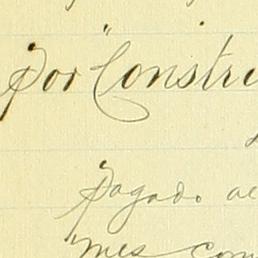 Por "Constru
Pagado al
mes con